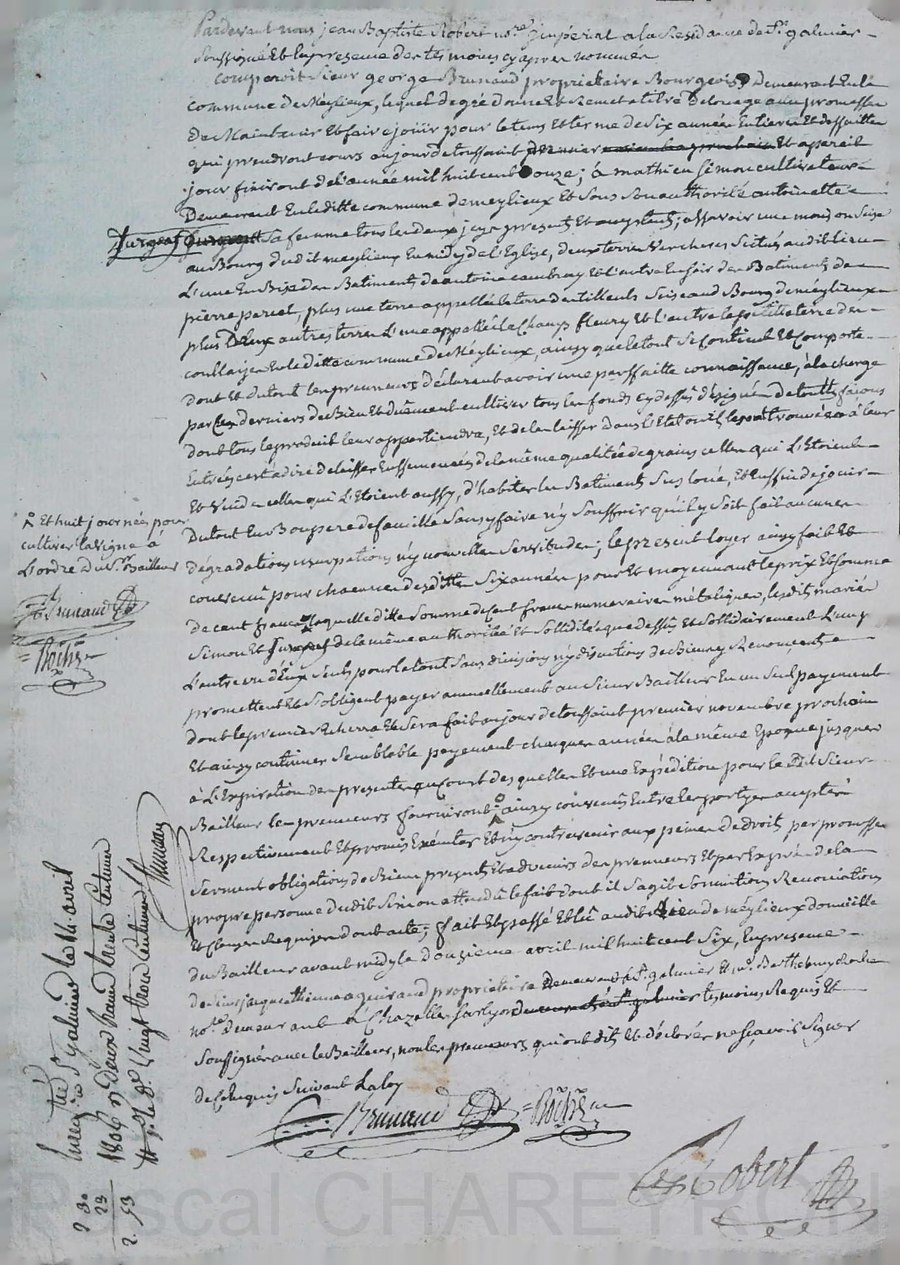 Pardevant nous jean Baptiste Robert no.re imperial a la Residance de St galmier
soussigné Et En presence des temoins cy apres nommés
Comparoit sieur george Brunand propriétaire Bourgeois Demeurant En la
commune de Méylieux, lequel de gré donne Et Remet a titre De louage avec promesse
De Maintenir Et faire joüir pour le tems Et terme de Six années Entieres Et
qui prendront cours au jour de toussaint Et a pareil
jour finiront de l'année mil huit cent Douze; à mathieu Simon cultivateur
Demeurant En la ditte commune de meylieux Et sous son authorité antoinette
sa femme tous les deux icy presents Et acceptants; assavoir une maison sise
au Bourg dudit meylieux En midy de l'Eglise, deux terres Vercheres situés au dit lieu
L'une En Bize des Batiments de antoine Et l'autre En soir des Batiments de
pierre pariat, plus une terre appellée la terre des tilleuls sise au Bourg de méylieux
plus Deux autres terres L'une appellée le Champ fleury Et l'autre la petite terre des
En la ditte commune de Méylieux, ainsy que le tout se Contient Et Comporte
dont Et du tout les preneurs déclarent avoir une parfaitte connaissance, à la charge
par Ces derniers de Bien Et dûement cultiver tous les fonds cy dessus désignés De toutes façons
dont tous le produit leur appartiendra, Et de les laisser dans l'Etat ou ils trouvés à leur
Entrée c'est a dire de laisser Ensemencées de la même qualité de grains celles qui L'Etoient
Et Vuides celles qui L'Etoient aussy, d'habiter les Batiments sus loué, Et Enfin de jouir
du tout En Bon pere de famille sans y faire n'y souffrir qu'il y soit fait aucunes
dégradations usurpations n'y nouvelles servitudes; le present loyer ainsy fait Et
convenu pour chacune desdittes Six années pour Et moyennant le prix Et somme
de cent francs laquelle ditte somme de cent francs numeraire métalique, les dits mariés
Simon Et de la même authorité Et sollidité que dessus Et sollidairement L'un p.r
L'autre un d'Eux seul pour le tout sans division n'y discution de Biens y Renoncent
promettent Et s'obligent payer annuellement au sieur Bailleur En un seul payement
dont le premier Echerra Et sera fait au jour de toussaint premier novembre prochain
Et ainsy continuer semblable payement chaque année à la même Epoque jusques
à l'Expiration des presentes au Cout desquelles Et une Expédition pour le dit sieur
Bailleur les preneurs fourniront ainsy convenus Entre les partyes accepté
Respectivement Et promis Exécuter Et n'y contrevenir aux peines de droit, par promesse
serment obligations de Biens presents Et advenirs des preneurs Et par Exprès de la
propre personne dudit Simon attendu le fait dont il s'agit soumissions Renonciations
Et Clauses Requises dont acte; fait Et passé Et lû audit lieu de méylieux domicille
du Bailleur avant midy le douzieme avril mil huit cent Six, En presence
de sieur jacque guirand propriétaire Demeurant a St galmier Et m.e Barthelemy Roche
no.re Demeurant à Chazelles sur lyon temoins Requis Et
soussignés avec le Bailleur, non les preneurs qui ont dit Et déclaré ne sçavoir signer
de Ce Enquis suivant La loy
Brunand
Roche
Robert
Et huit journées pour
cultiver la vigne à
L'ordre Du S.r Bailleur
Brunand
Roche
Enregis.tré à St galmier le avril
1806 Deux francs trente Centimes
2 30
23
2. 53
Pascal CHAREYRON